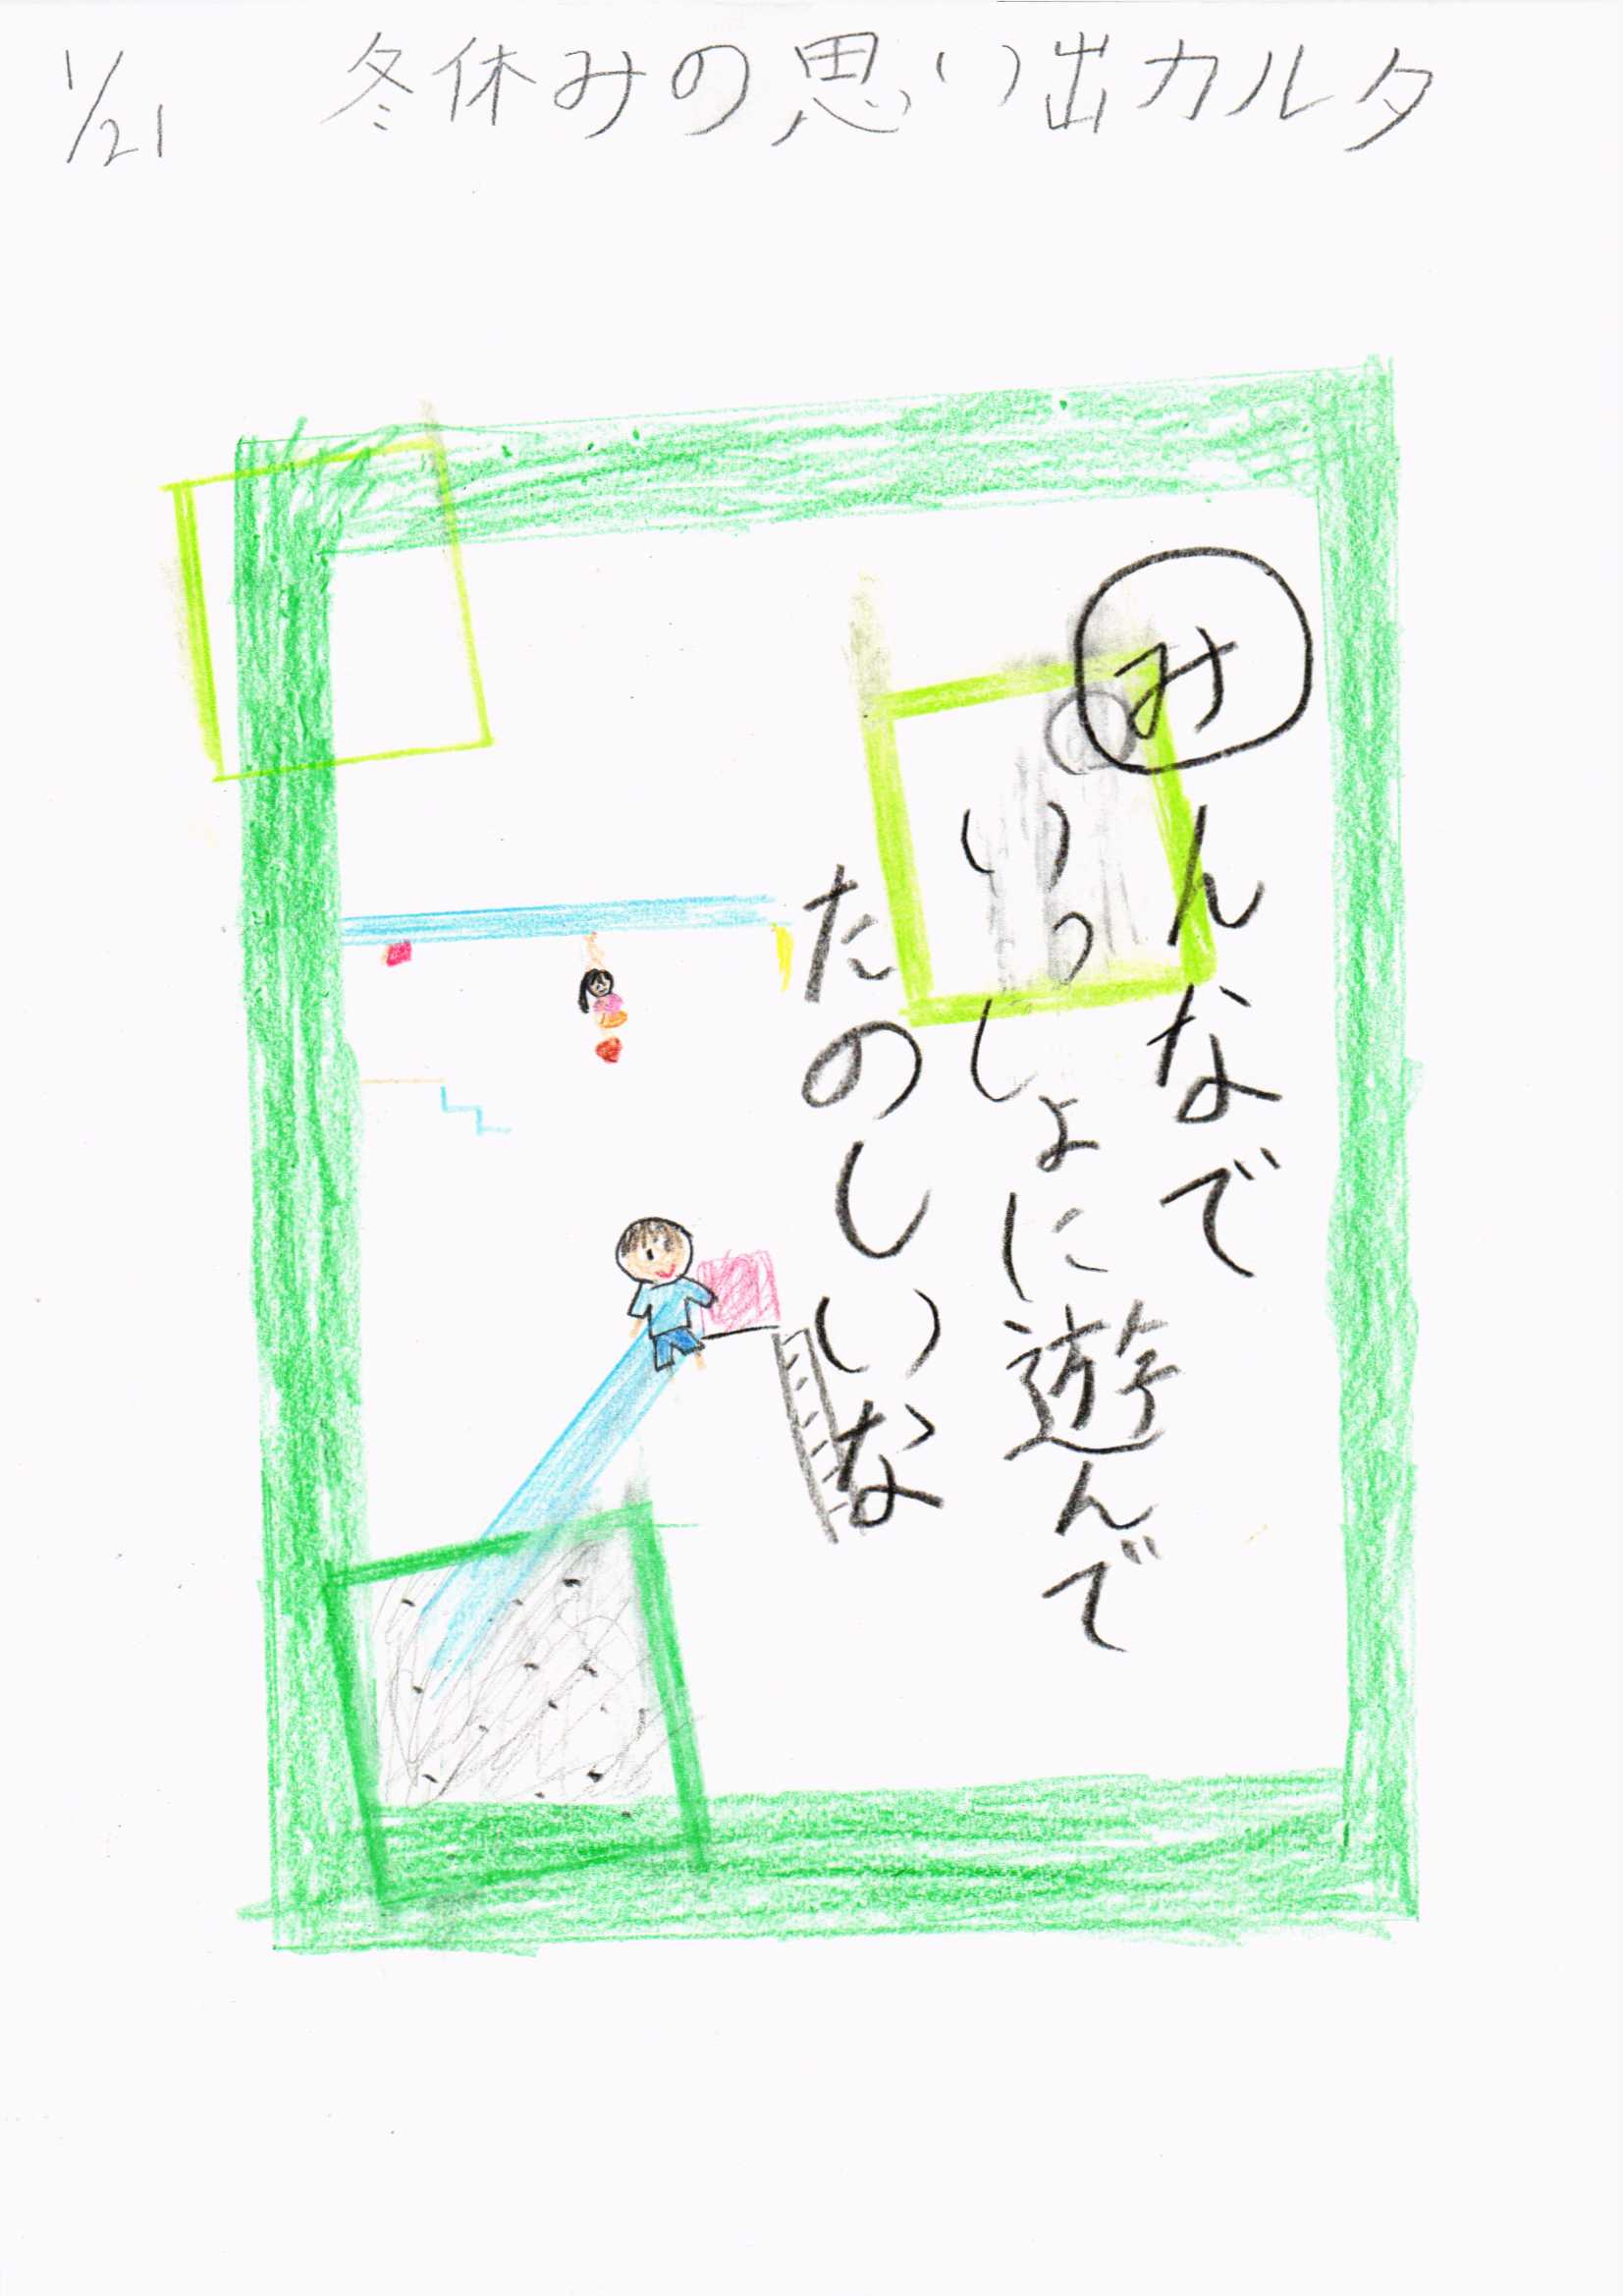 1/21
冬休みの思い出カルタ
みんなで
いっしょに遊んで
たのしいな